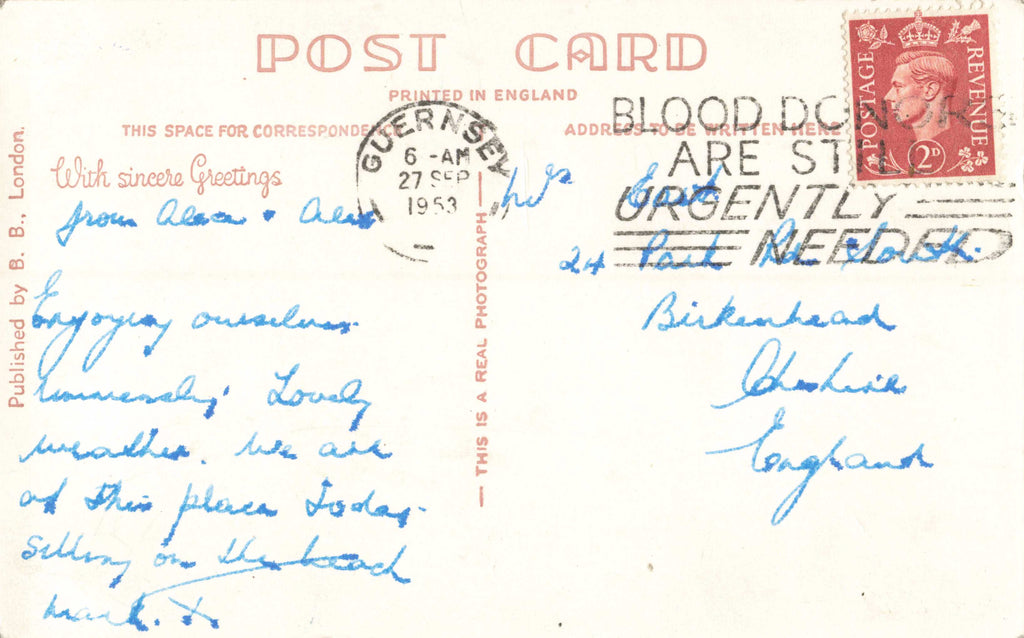 POST CARD
PRINTED IN ENGLAND
THIS SPACE FOR CORRESPONDENCE
ADDRESS TO BE WRITTEN HERE
With sincere Greetings
from Alex
Enjoying ourselves
immensely. Lovely
weather. We are
at this place today
sitting on the beach
mark. X
Published by B. B., London.
THIS IS A REAL PHOTOGRAPH
GUERNSEY
6 - AM
27 SEP
1953
BLOOD DONORS
ARE STILL
URGENTLY
NEEDED
POSTAGE REVENUE
2D
Mrs East
24 Park Rd South
Birkenhead
Cheshire
England